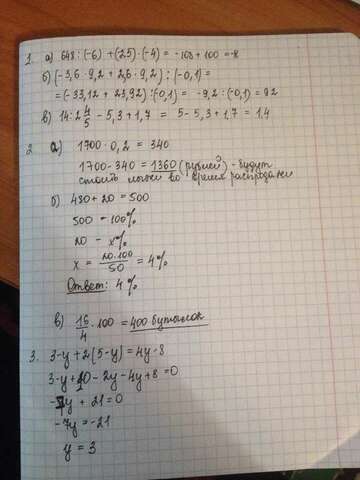 1. а) 648:(-6)+(25)·(-4) = -108+100=-8
б) (-3,6·9,2+2,6·9,2):(-0,1)=
=(-33,12+23,92):(-0,1)= -9,2:(-0,1)=92
в) 14:2 4/5 -5,3+1,7 = 5-5,3+1,7= 1.4
2. а) 1700·0,2 = 340
1700-340=1360 (рублей) - будут
стоить лыжи во время распродажи
б) 480+20=500
500 - 100%
20 - x%
x = 20·100/50 = 4%
Ответ: 4%
в) 16/4 · 100 = 400 бутылок
3. 3-y+2(5-y)=4y-8
3-y+10-2y-4y+8=0
-7y+21=0
-7y=-21
y=3